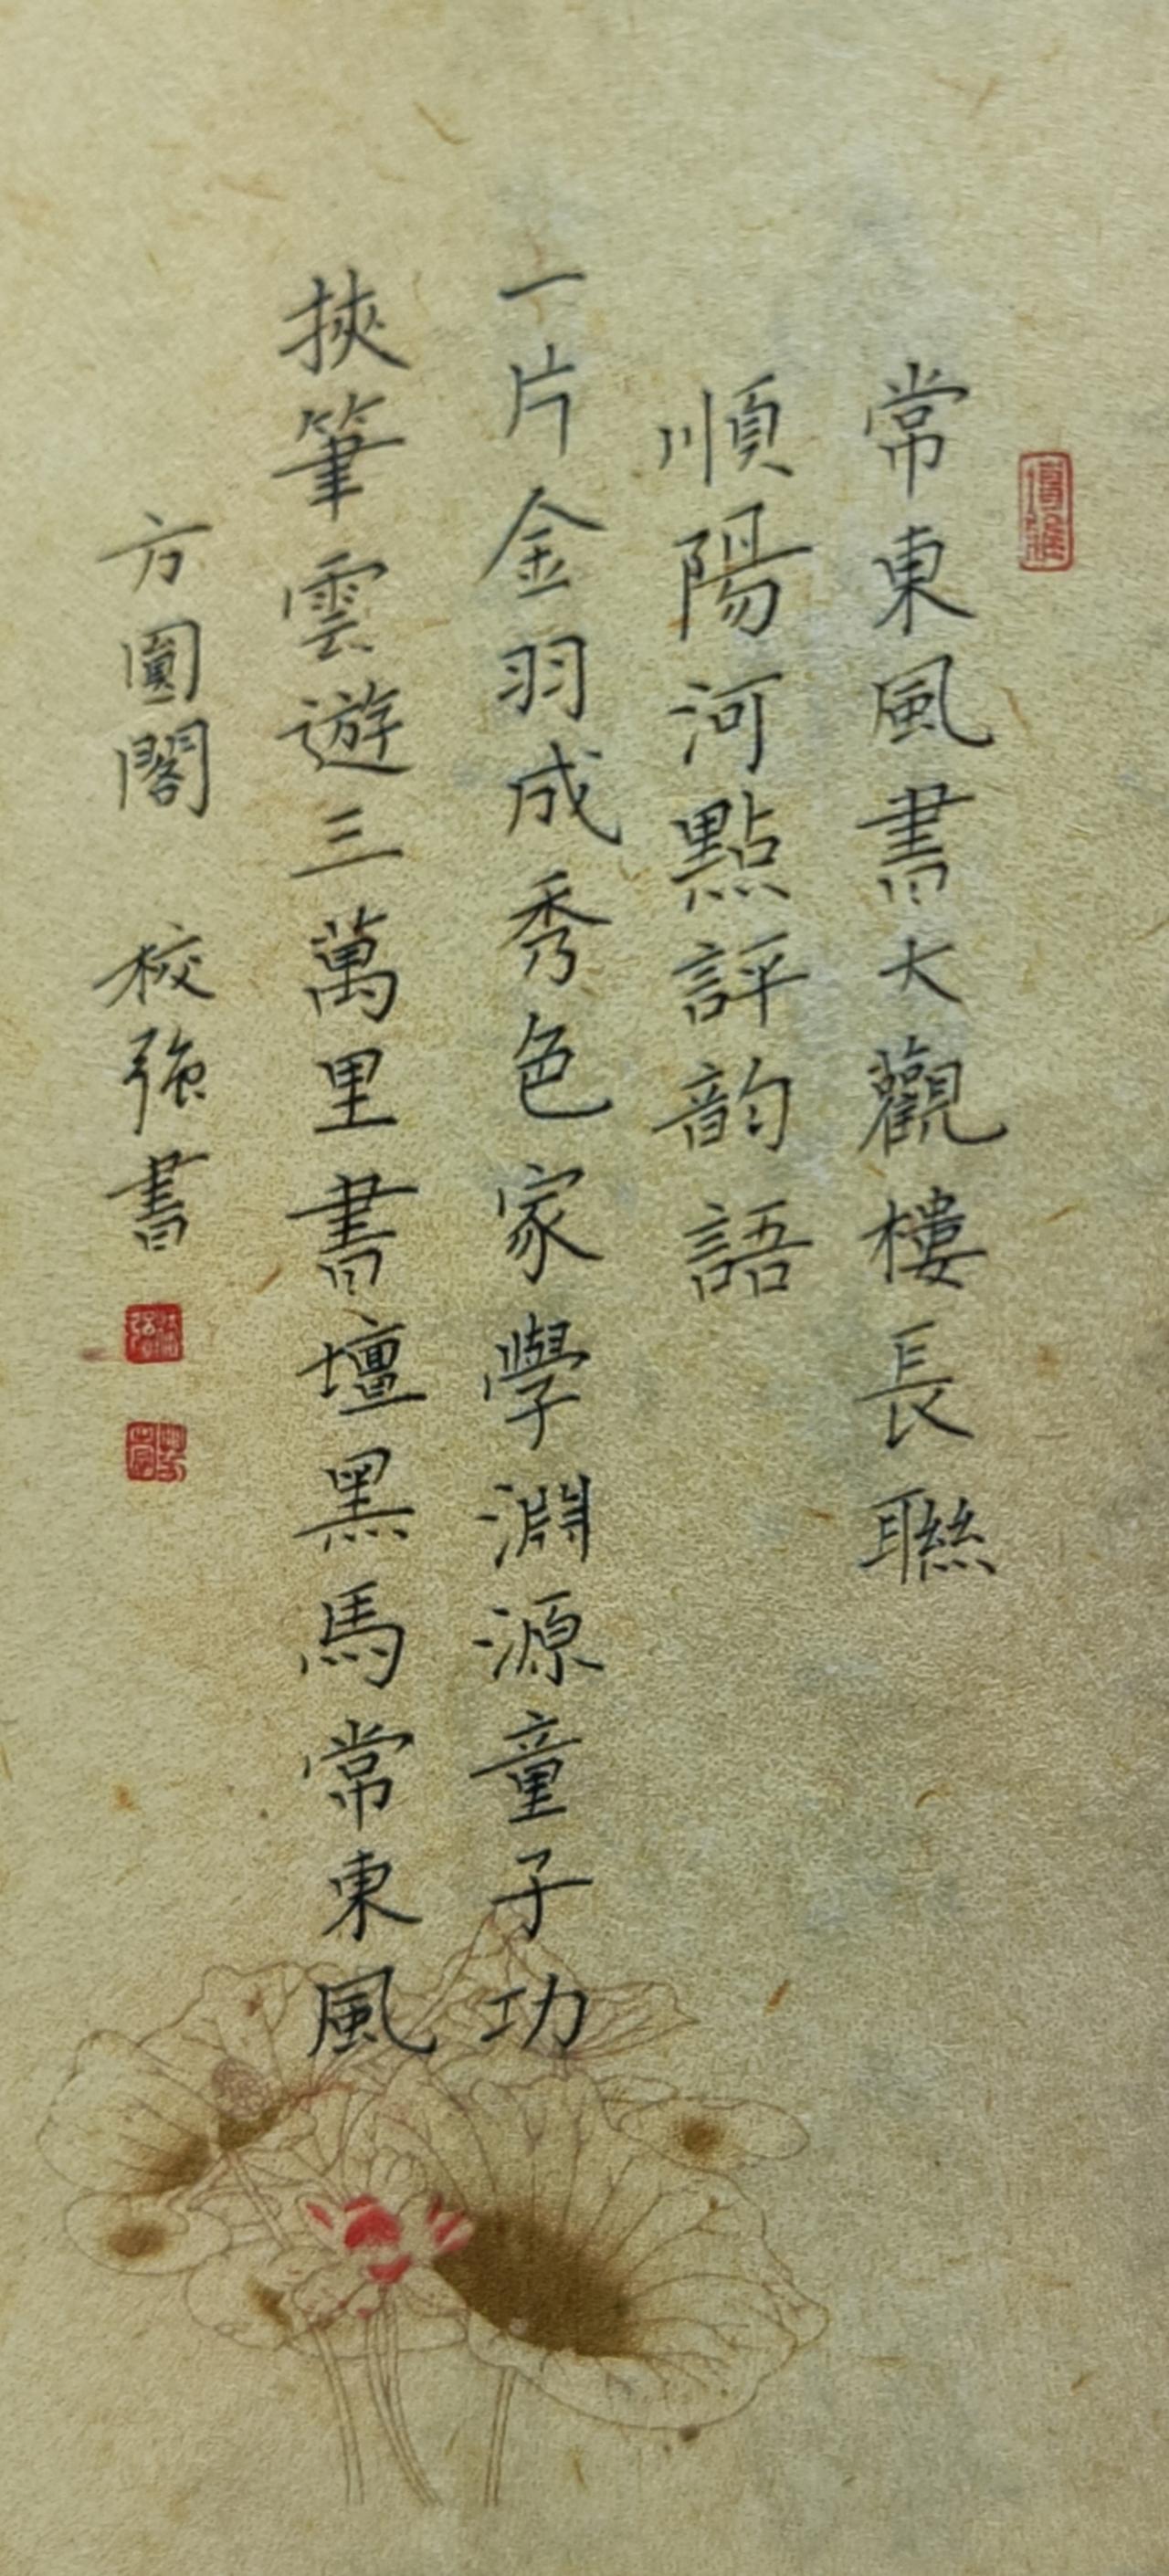 常東風書大觀樓長聯
順陽河點評韵語
一片金羽成秀色家學淵源童子功
挾筆雲遊三萬里書壇黑馬常東風
方圓閣 校強書